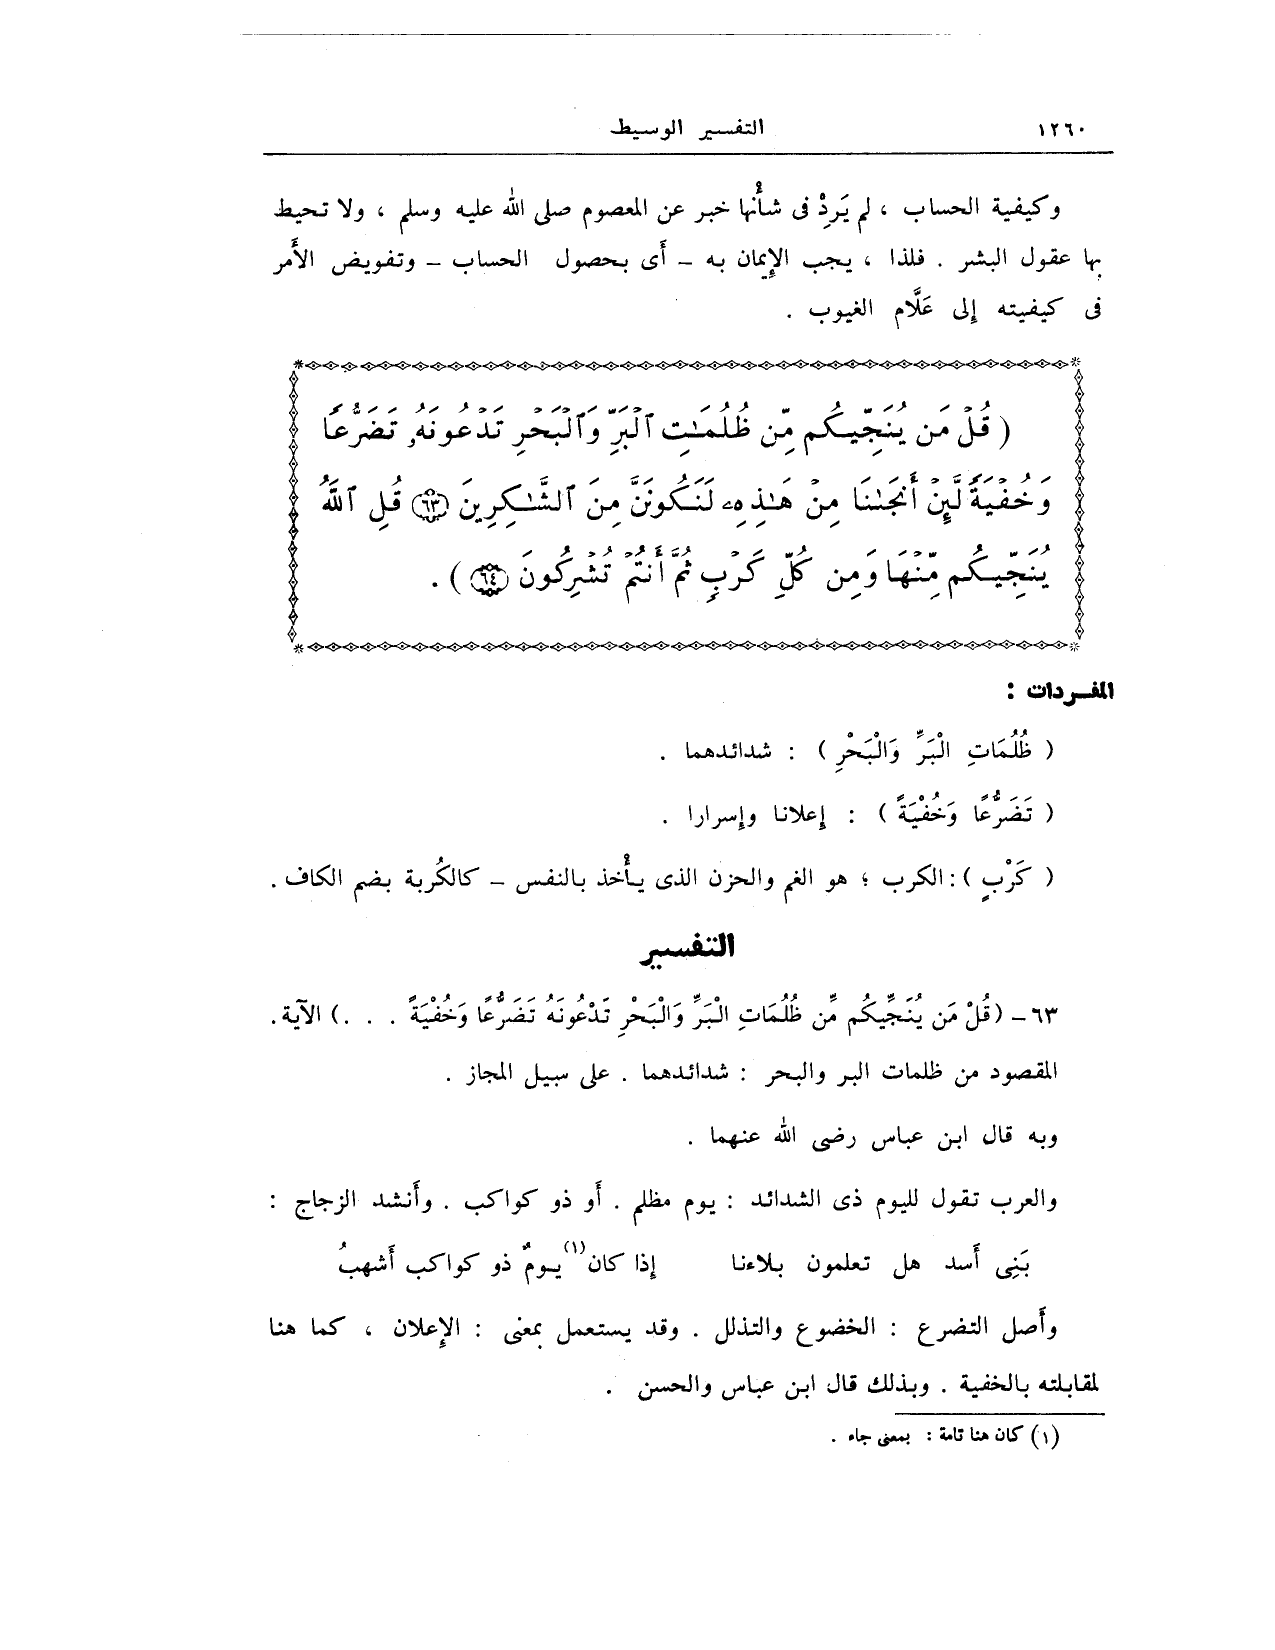 ١٢٦٠
التفسير الوسيط
وكيفية الحساب ، لم يَرِدْ فى شأْنها خبر عن المعصوم صلى الله عليه وسلم ، ولا تحيط
بها عقول البشر . فلذا ، يجب الإيمان به – أى بحصول الحساب – وتفويض الأَمر
فى كيفيته إلى عَلَّام الغيوب .
( قُلْ مَن يُنَجِّيكُم مِّن ظُلُمَٰتِ ٱلْبَرِّ وَٱلْبَحْرِ تَدْعُونَهُۥ تَضَرُّعًا
وَخُفْيَةً لَّئِنْ أَنجَىٰنَا مِنْ هَٰذِهِۦ لَنَكُونَنَّ مِنَ ٱلشَّٰكِرِينَ ﴿٦٣﴾ قُلِ ٱللَّهُ
يُنَجِّيكُم مِّنْهَا وَمِن كُلِّ كَرْبٍ ثُمَّ أَنتُمْ تُشْرِكُونَ ﴿٦٤﴾ ) .
المفـردات :
( ظُلُمَاتِ الْبَرِّ وَالْبَحْرِ ) : شدائدهما .
( تَضَرُّعًا وَخُفْيَةً ) : إعلانا وإسرارا .
( كَرْبٍ ) : الكرب ؛ هو الغم والحزن الذى يأْخذ بالنفس – كالكُربة بضم الكاف .
التفسير
٦٣ – (قُلْ مَن يُنَجِّيكُم مِّن ظُلُمَاتِ الْبَرِّ وَالْبَحْرِ تَدْعُونَهُ تَضَرُّعًا وَخُفْيَةً . . .) الآية .
المقصود من ظلمات البر والبحر : شدائدهما . على سبيل المجاز .
وبه قال ابن عباس رضى الله عنهما .
والعرب تقول لليوم ذى الشدائد : يوم مظلم . أَو ذو كواكب . وأَنشد الزجاج :
بَنِى أَسد هل تعلمون بلاءنا إذا كان(١) يومٌ ذو كواكب أَشهبُ
وأَصل التضرع : الخضوع والتذلل . وقد يستعمل بمعنى : الإعلان ، كما هنا
لمقابلته بالخفية . وبذلك قال ابن عباس والحسن .
(١) كان هنا تامة : بمعنى جاء .